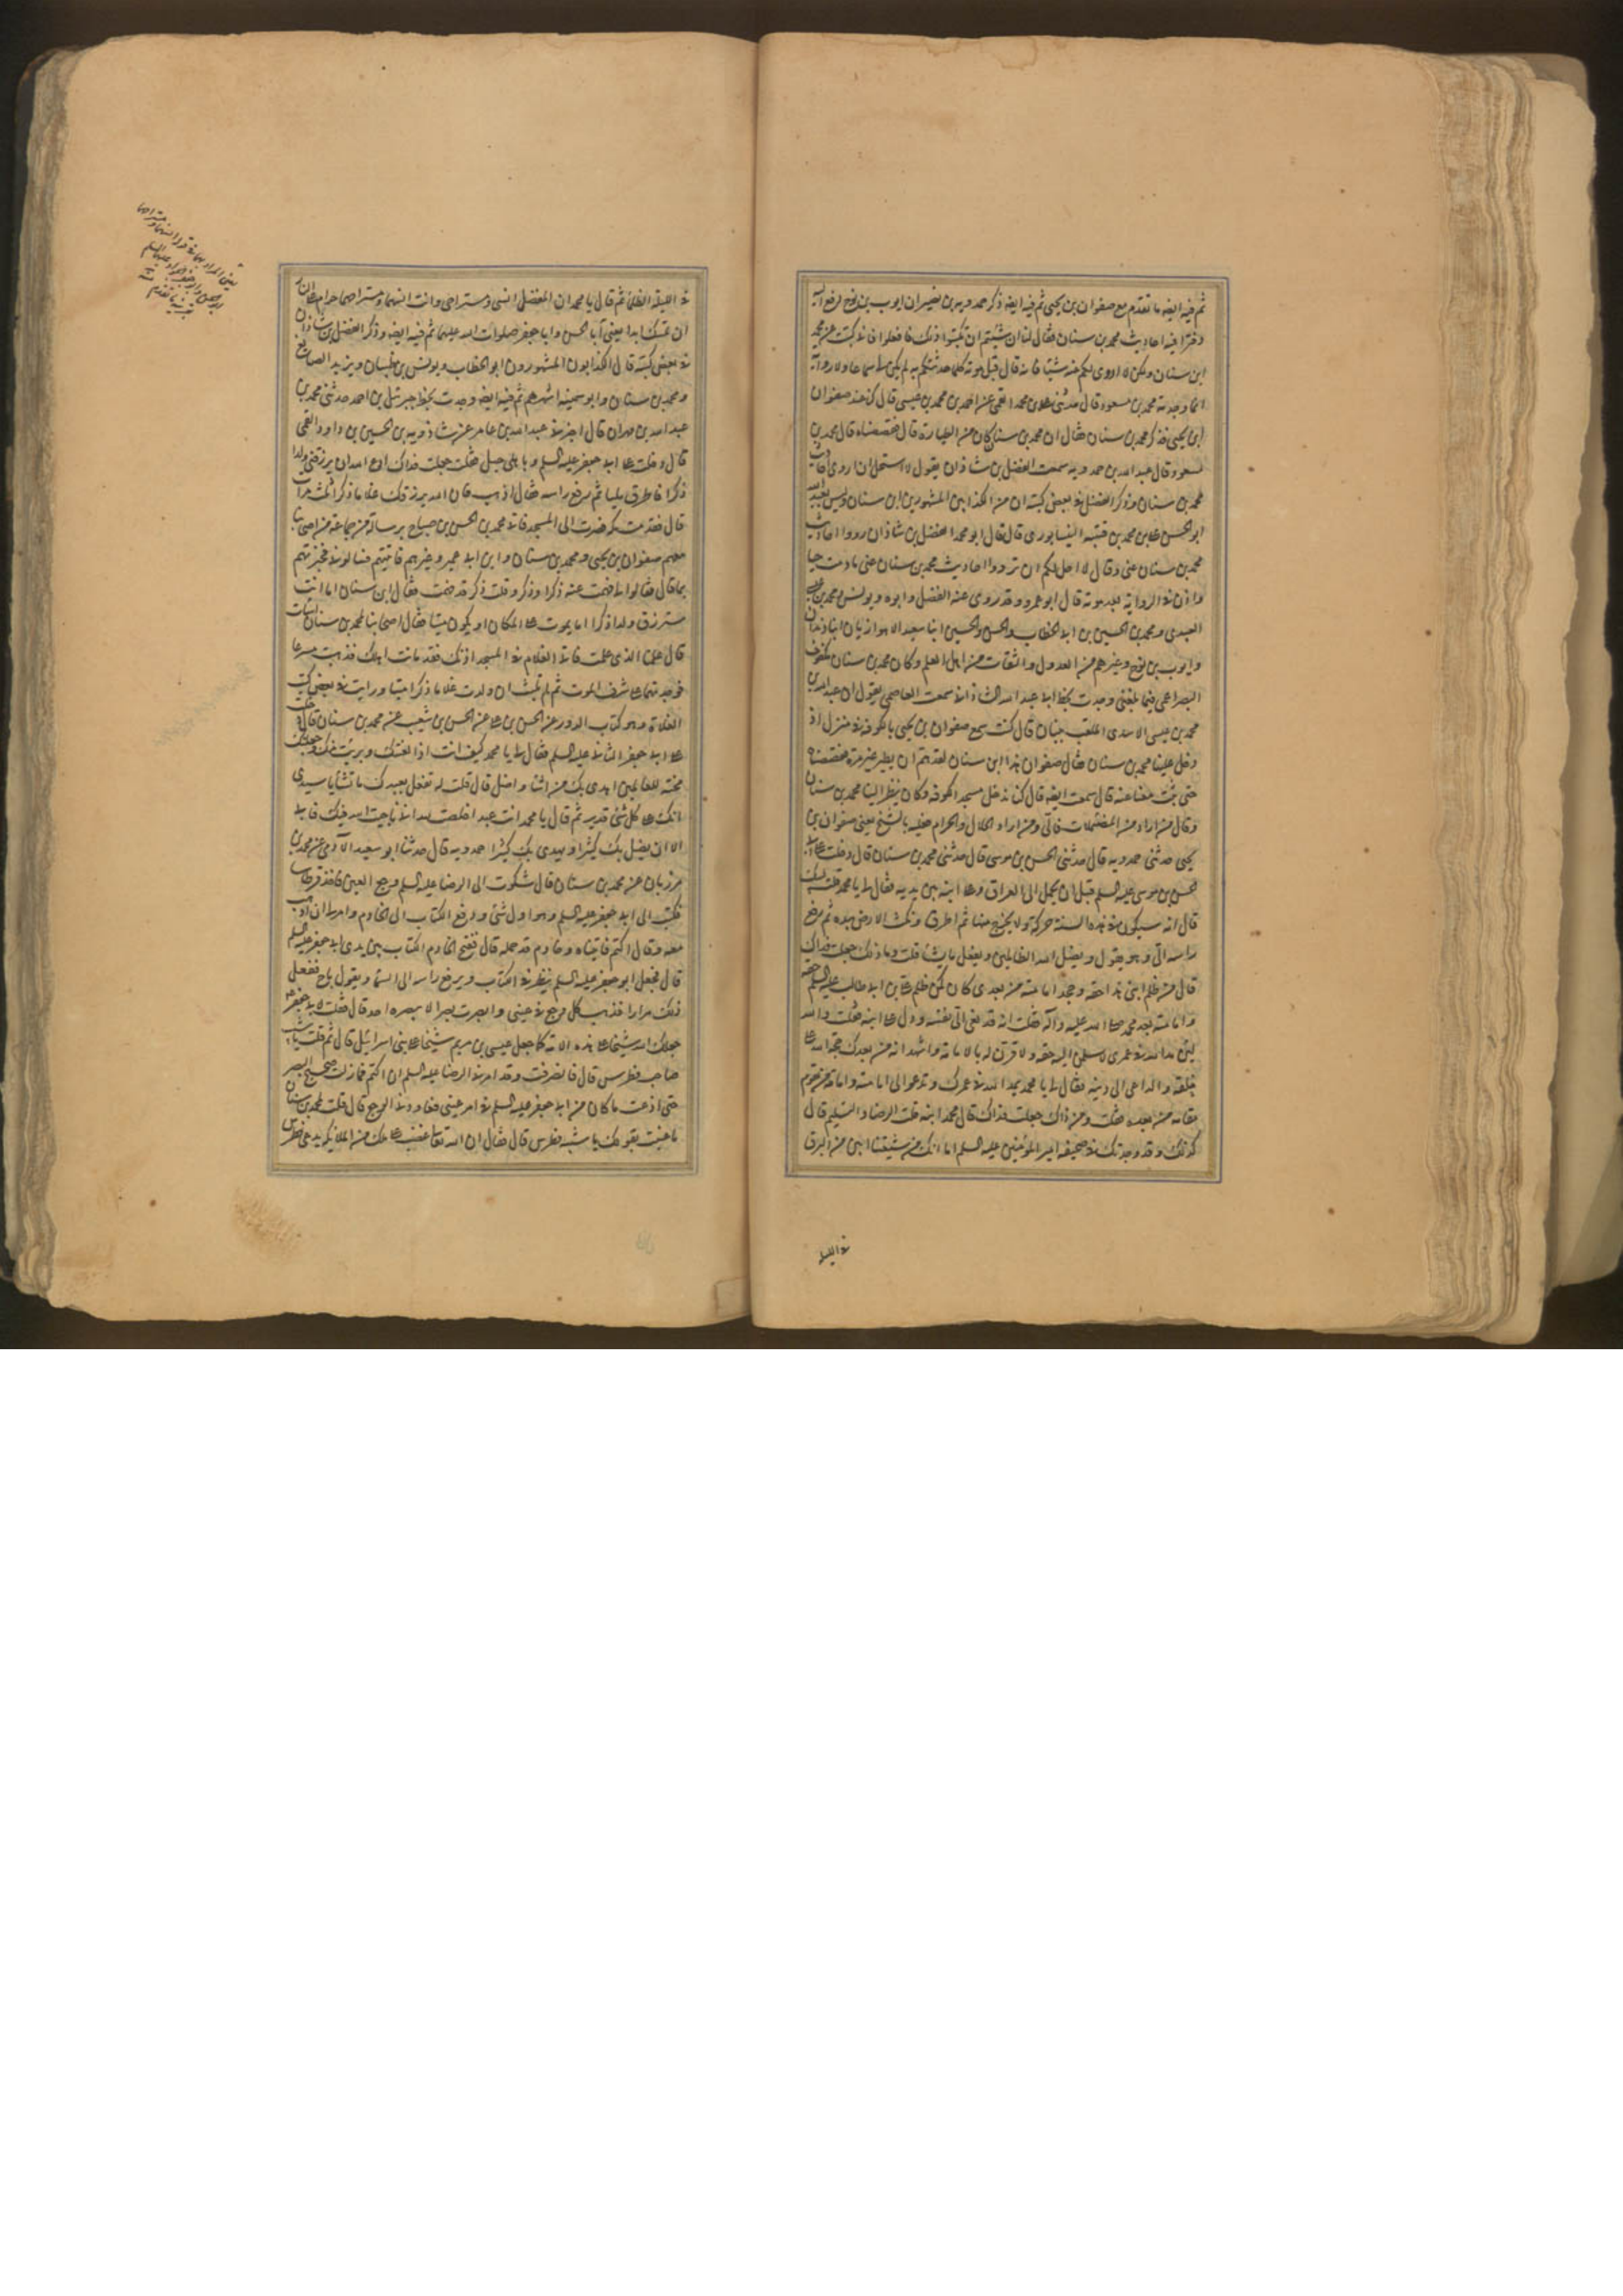 ثم فيه ايضه ما تقدم مع صفوان بن يحيى ثم فيه ايضه ذكر حمدويه بن نصير ان ايوب بن نوح دفع اليه
دفترا فيه احاديث محمد بن سنان فقال لنا ان شئتم ان تكتبوا ذلك فافعلوا فانى كتبت عن محمد
ابن سنان ولكن لا اروى لكم عنه شيئا فانه قال قبل موته كلما حدثتكم به لم يكن لى سماعا ولا رواية
انما وجدته محمد بن مسعود قال حدثنى على بن محمد القمى عن احمد بن محمد بن عيسى قال كنا عند صفوان
ابن يحيى فذكر محمد بن سنان فقال ان محمد بن سنان كان من الطيارة قال فقصصناه قال محمد بن
مسعود قال عبد الله بن حمدويه سمعت الفضل بن شاذان يقول لا استحل ان اروى احاديث
محمد بن سنان وذكر الفضل فى بعض كتبه ان من الكذابين المشهورين ابن سنان وليس بعبد الله
ابو الحسن على بن محمد بن قتيبه النيسابورى قال قال ابو محمد الفضل بن شاذان ردوا احاديث
محمد بن سنان عنى وقال لا احل لكم ان ترووا احاديث محمد بن سنان عنى مادمت حيا
واذن فى الرواية بعد موته قال ابو عمرو وقد روى عنه الفضل وابوه ويونس ومحمد بن عيسى
العبيدى ومحمد بن الحسين بن ابى الخطاب والحسن والحسين ابنا سعيد الاهوازيان ابنا دندان
وايوب بن نوح وغيرهم من العدول والثقات من اهل العلم وكان محمد بن سنان مكفوف
البصر اعمى فيما بلغنى وجدت بخط ابى عبد الله الشاذانى سمعت العاصمى يقول ان عبد الله بن
محمد بن عيسى الاسدى الملقب ببنان قال كنت مع صفوان بن يحيى بالكوفه فى منزل اذ
دخل علينا محمد بن سنان فقال صفوان هذا ابن سنان لقد هم ان يطير غير مرة فقصصناه
حتى ثبت معنا عنه قال سمعت ايضه قال كنا ندخل مسجد الكوفه وكان ينظر الينا محمد بن سنان
وقال من اراد من المعضلات فالى ومن اراد الحلال والحرام فعليه بالشيخ يعنى صفوان بن
يحيى حدثنى حمدويه قال حدثنى الحسن بن موسى قال حدثنى محمد بن سنان قال دخلت على ابى
الحسن موسى عليه السلم قبل ان يحمل الى العراق وعلى ابنه بين يديه فقال لى يا محمد قلت لبيك
قال انه سيكون فى هذه السنة حركة ولا تخرج منها ثم اطرق ونكت الارض بيده ثم رفع
راسه الى وهو يقول ويضل الله الظالمين ويفعل ما يشاء قلت وما ذلك جعلت فداك
قال من ظلم ابنى هذا حقه وجحد امامته من بعدى كان كمن ظلم على بن ابى طالب عليه السلم حقه
وامامته بعد محمد صلى الله عليه وآله فقلت انه قد نعى الى نفسه ودل على ابنه فقلت والله
لئن مد الله فى عمرى لاسلمن اليه حقه ولاقرن له بالامامة واشهد انه من بعدك حجة الله على
خلقه والداعى الى دينه فقال لى يا محمد يمد الله فى عمرك وتدعو الى امامته وامامة من يقوم
مقامه من بعده فقلت ومن ذاك جعلت فداك قال محمد ابنه قلت الرضا والتسليم قال
كذلك وقد وجدتك فى صحيفه امير المؤمنين عليه السلم اما انك من شيعتنا ابين من البرق
فى الليله
فى الليلة الظلماء ثم قال يا محمد ان المفضل انسى ومستراحى وانت انسهما ومستراحهما حرام على النار
ان تمسك ابدا يعنى ابا الحسن وابا جعفر صلوات الله عليهما ثم فيه ايضه وذكر الفضل بن شاذان
فى بعض كتبه قال الكذابون المشهورون ابو الخطاب ويونس بن ظبيان ويزيد الصائغ
ومحمد بن سنان وابو سمينه اشهرهم ثم فيه ايضه وجدت بخط جبرئيل بن احمد حدثنى محمد بن
عبد الله بن مهران قال اخبرنى عبد الله بن عامر عن شاذويه بن الحسين بن داود القمى
قال دخلت على ابى جعفر عليه السلم وباهلى حبل فقلت جعلت فداك ادع الله ان يرزقنى ولدا
ذكرا فاطرق مليا ثم رفع راسه فقال اذهب فان الله يرزقك غلاما ذكرا ثلث مرات
قال فقدمت مكه فصرت الى المسجد فاتى محمد بن الحسن بن صباح برسالة من جماعة من اصحابنا
منهم صفوان بن يحيى ومحمد بن سنان وابن ابى عمير وغيرهم فاتيتهم فسالونى فخبرتهم
بما قال فقالوا لى فهمت عنه ذكرا وذكر وقلت ذكر قد فهمت فقال ابن سنان اما انت
سترزق ولدا ذكرا اما يموت على المكان او يكون ميتا فقال اصحابنا لمحمد بن سنان اسات
قال علمنا الذى علمت فاتى الغلام فى المسجد اذنك فقد مات اهلك فذهبت مسرعا
فوجدتها على شرف الموت ثم لم تلبث ان ولدت غلاما ذكرا ميتا ورايت فى بعض كتب
الغلاة وهو كتاب الدور عن الحسن بن على عن الحسن بن شعيب عن محمد بن سنان قال دخلت
على ابى جعفر الثانى عليه السلم فقال لى يا محمد كيف انت اذا لعنتك وبرئت منك وجعلتك
محنة للعالمين اهدى بك من اشاء واضل قال قلت له تفعل بعبدك ما تشاء يا سيدى
انك على كل شئ قدير ثم قال يا محمد انت عبد اخلصت لله انى ناجيت الله فيك فابى
الا ان يضل بك كثيرا ويهدى بك كثيرا حمدويه قال حدثنا ابو سعيد الآدمى عن محمد بن
مرزبان عن محمد بن سنان قال شكوت الى الرضا عليه السلم وجع العين فاخذ قرطاسا
فكتب الى ابى جعفر عليه السلم وهو اول شئ ودفع الكتاب الى الخادم وامرنى ان اذهب
معه وقال اكتم فاتيناه وخادم قد حمله قال ففتح الخادم الكتاب بين يدى ابى جعفر عليه السلم
قال فجعل ابو جعفر عليه السلم ينظر فى الكتاب ويرفع راسه الى السماء ويقول ناج ففعل
ذلك مرارا فذهب كل وجع فى عينى وابصرت بصرا لا يبصره احد قال فقلت لابى جعفر
جعلك الله شيخا على هذه الامة كما جعل عيسى بن مريم شيخا على بنى اسرائيل قال ثم قلت يا شبيه
صاحب فطرس قال فانصرفت وقد امرنى الرضا عليه السلم ان اكتم فما زلت صحيح البصر
حتى اذعت ما كان من ابى جعفر عليه السلم فى امر عينى فعاودنى الوجع قال قلت لمحمد بن سنان
ما عنيت بقولك يا شبيه فطرس قال فقال ان الله تعالى غضب على ملك من الملائكة يدعى فطرس